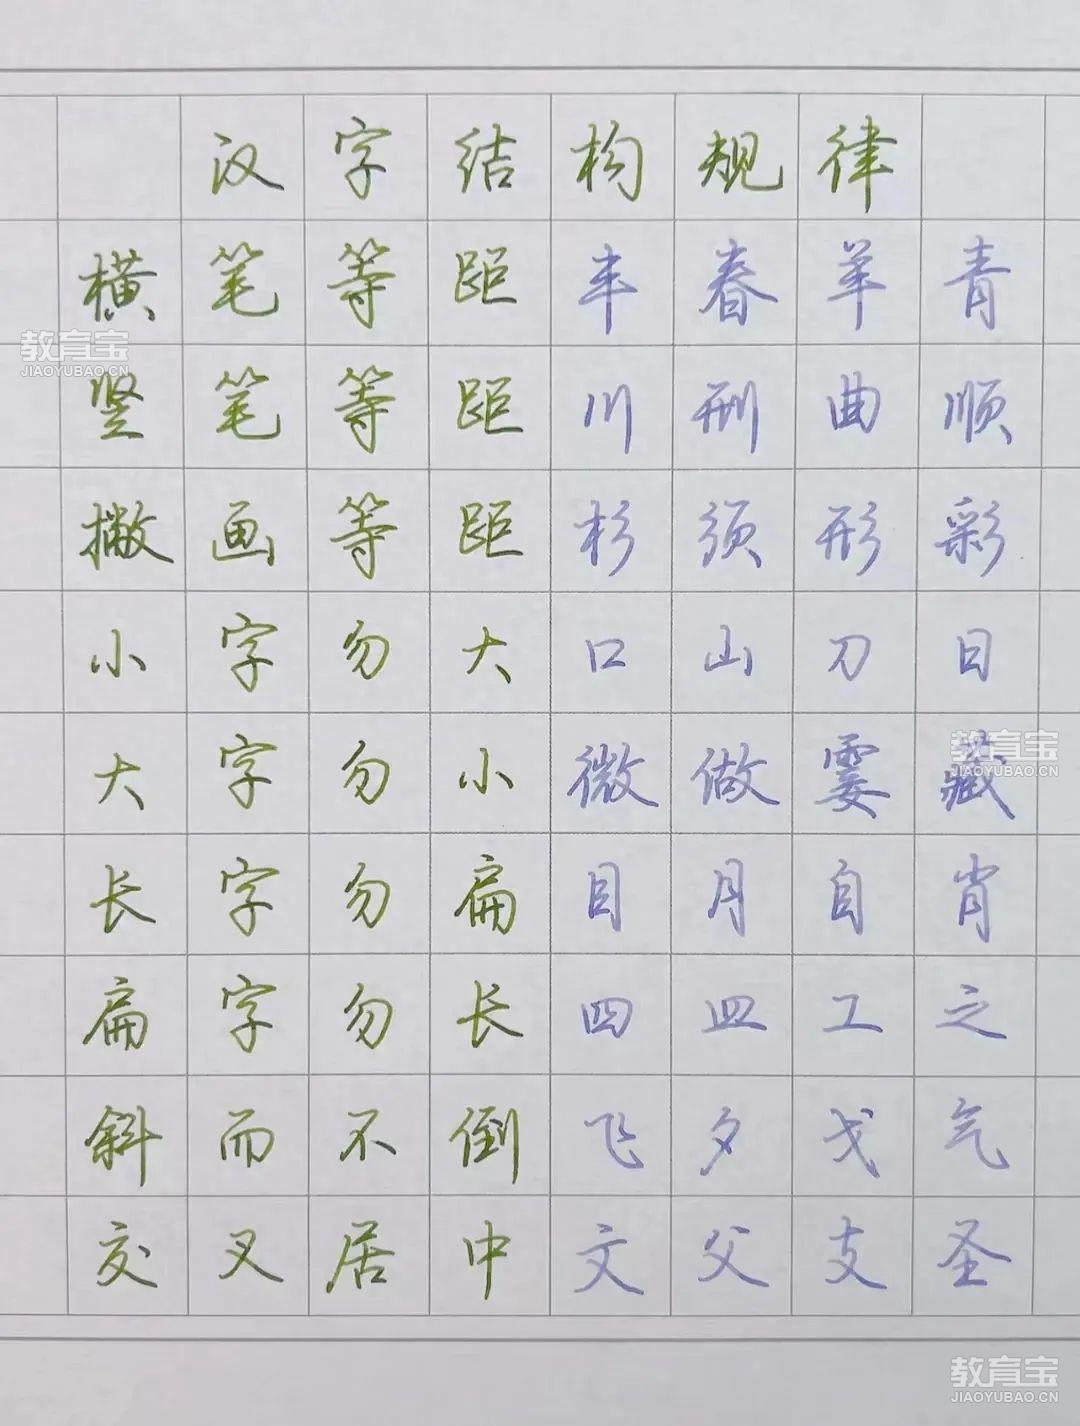 汉字结构规律
横笔等距丰春羊青
教育宝
JIAOYUBAO.CN
竖笔等距川刑曲顺
撇画等距杉须形彩
小字勿大口山刀日
大字勿小微做霎藏
教育宝
JIAOYUBAO.CN
长字勿扁目月自肖
扁字勿长四皿工之
斜而不倒飞夕戈气
交叉居中文父支圣
教育宝
JIAOYUBAO.CN